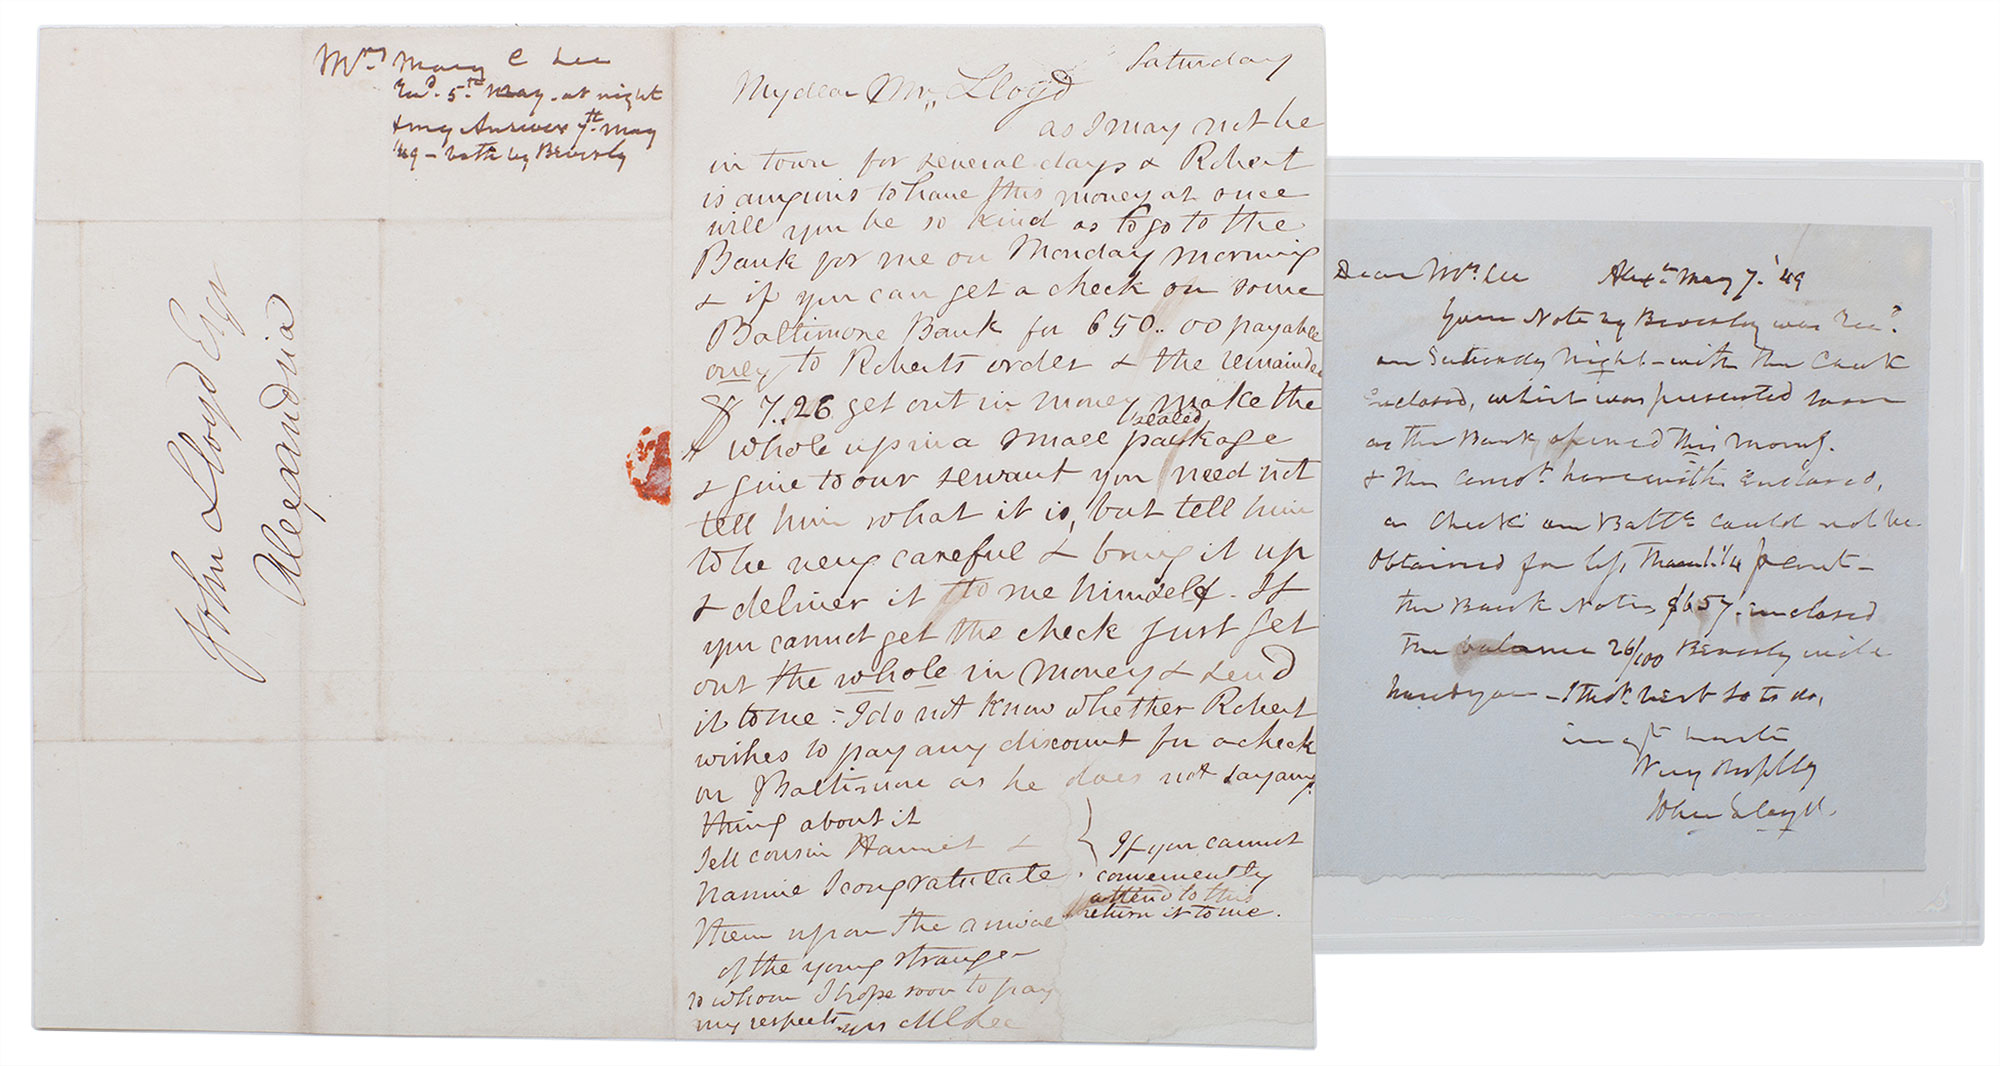 Mrs Mary C Lee
Recd. 5th May - at night
& my Answer 7th May
'49 - both by Beverly
John Lloyd Esqr
Alexandria
Saturday
My dear Mr. Lloyd
as I may not be
in town for several days & Robert
is anxious to have this money at once
will you be so kind as to go to the
Bank for me on Monday morning
& if you can get a check on some
Baltimore Bank for 650..00 payable
only to Roberts order & the remainder
$ 7.26 get out in money make the
whole up in a small sealed package
& give to our servant you need not
tell him what it is, but tell him
to be very careful & bring it up
& deliver it to me himself. If
you cannot get the check just get
out the whole in money & send
it to me - I do not know whether Robert
wishes to pay any discount for a check
on Baltimore as he does not say any
thing about it
Tell cousin Harriet &
Nannie I congratulate
them upon the arrival
of the young stranger
to whom I hope soon to pay
my respects yrs MC Lee
If you cannot
conveniently
attend to this
return it to me.
Dear Mrs. Lee Alexa May 7. '49
Your Note by Beverly was recd.
on Saturday Night - with the Check
Enclosed, which was presented soon
as the Bank opened this Morng.
& the amot. herewith Enclosed,
a Check on Balto could not be
Obtained for less than 1/4 pcent -
the Bank Notes $657. enclosed
the balance 26/100 Beverly will
hand you - I thot. best so to do,
in gt haste
Very Respflly
John Lloyd.